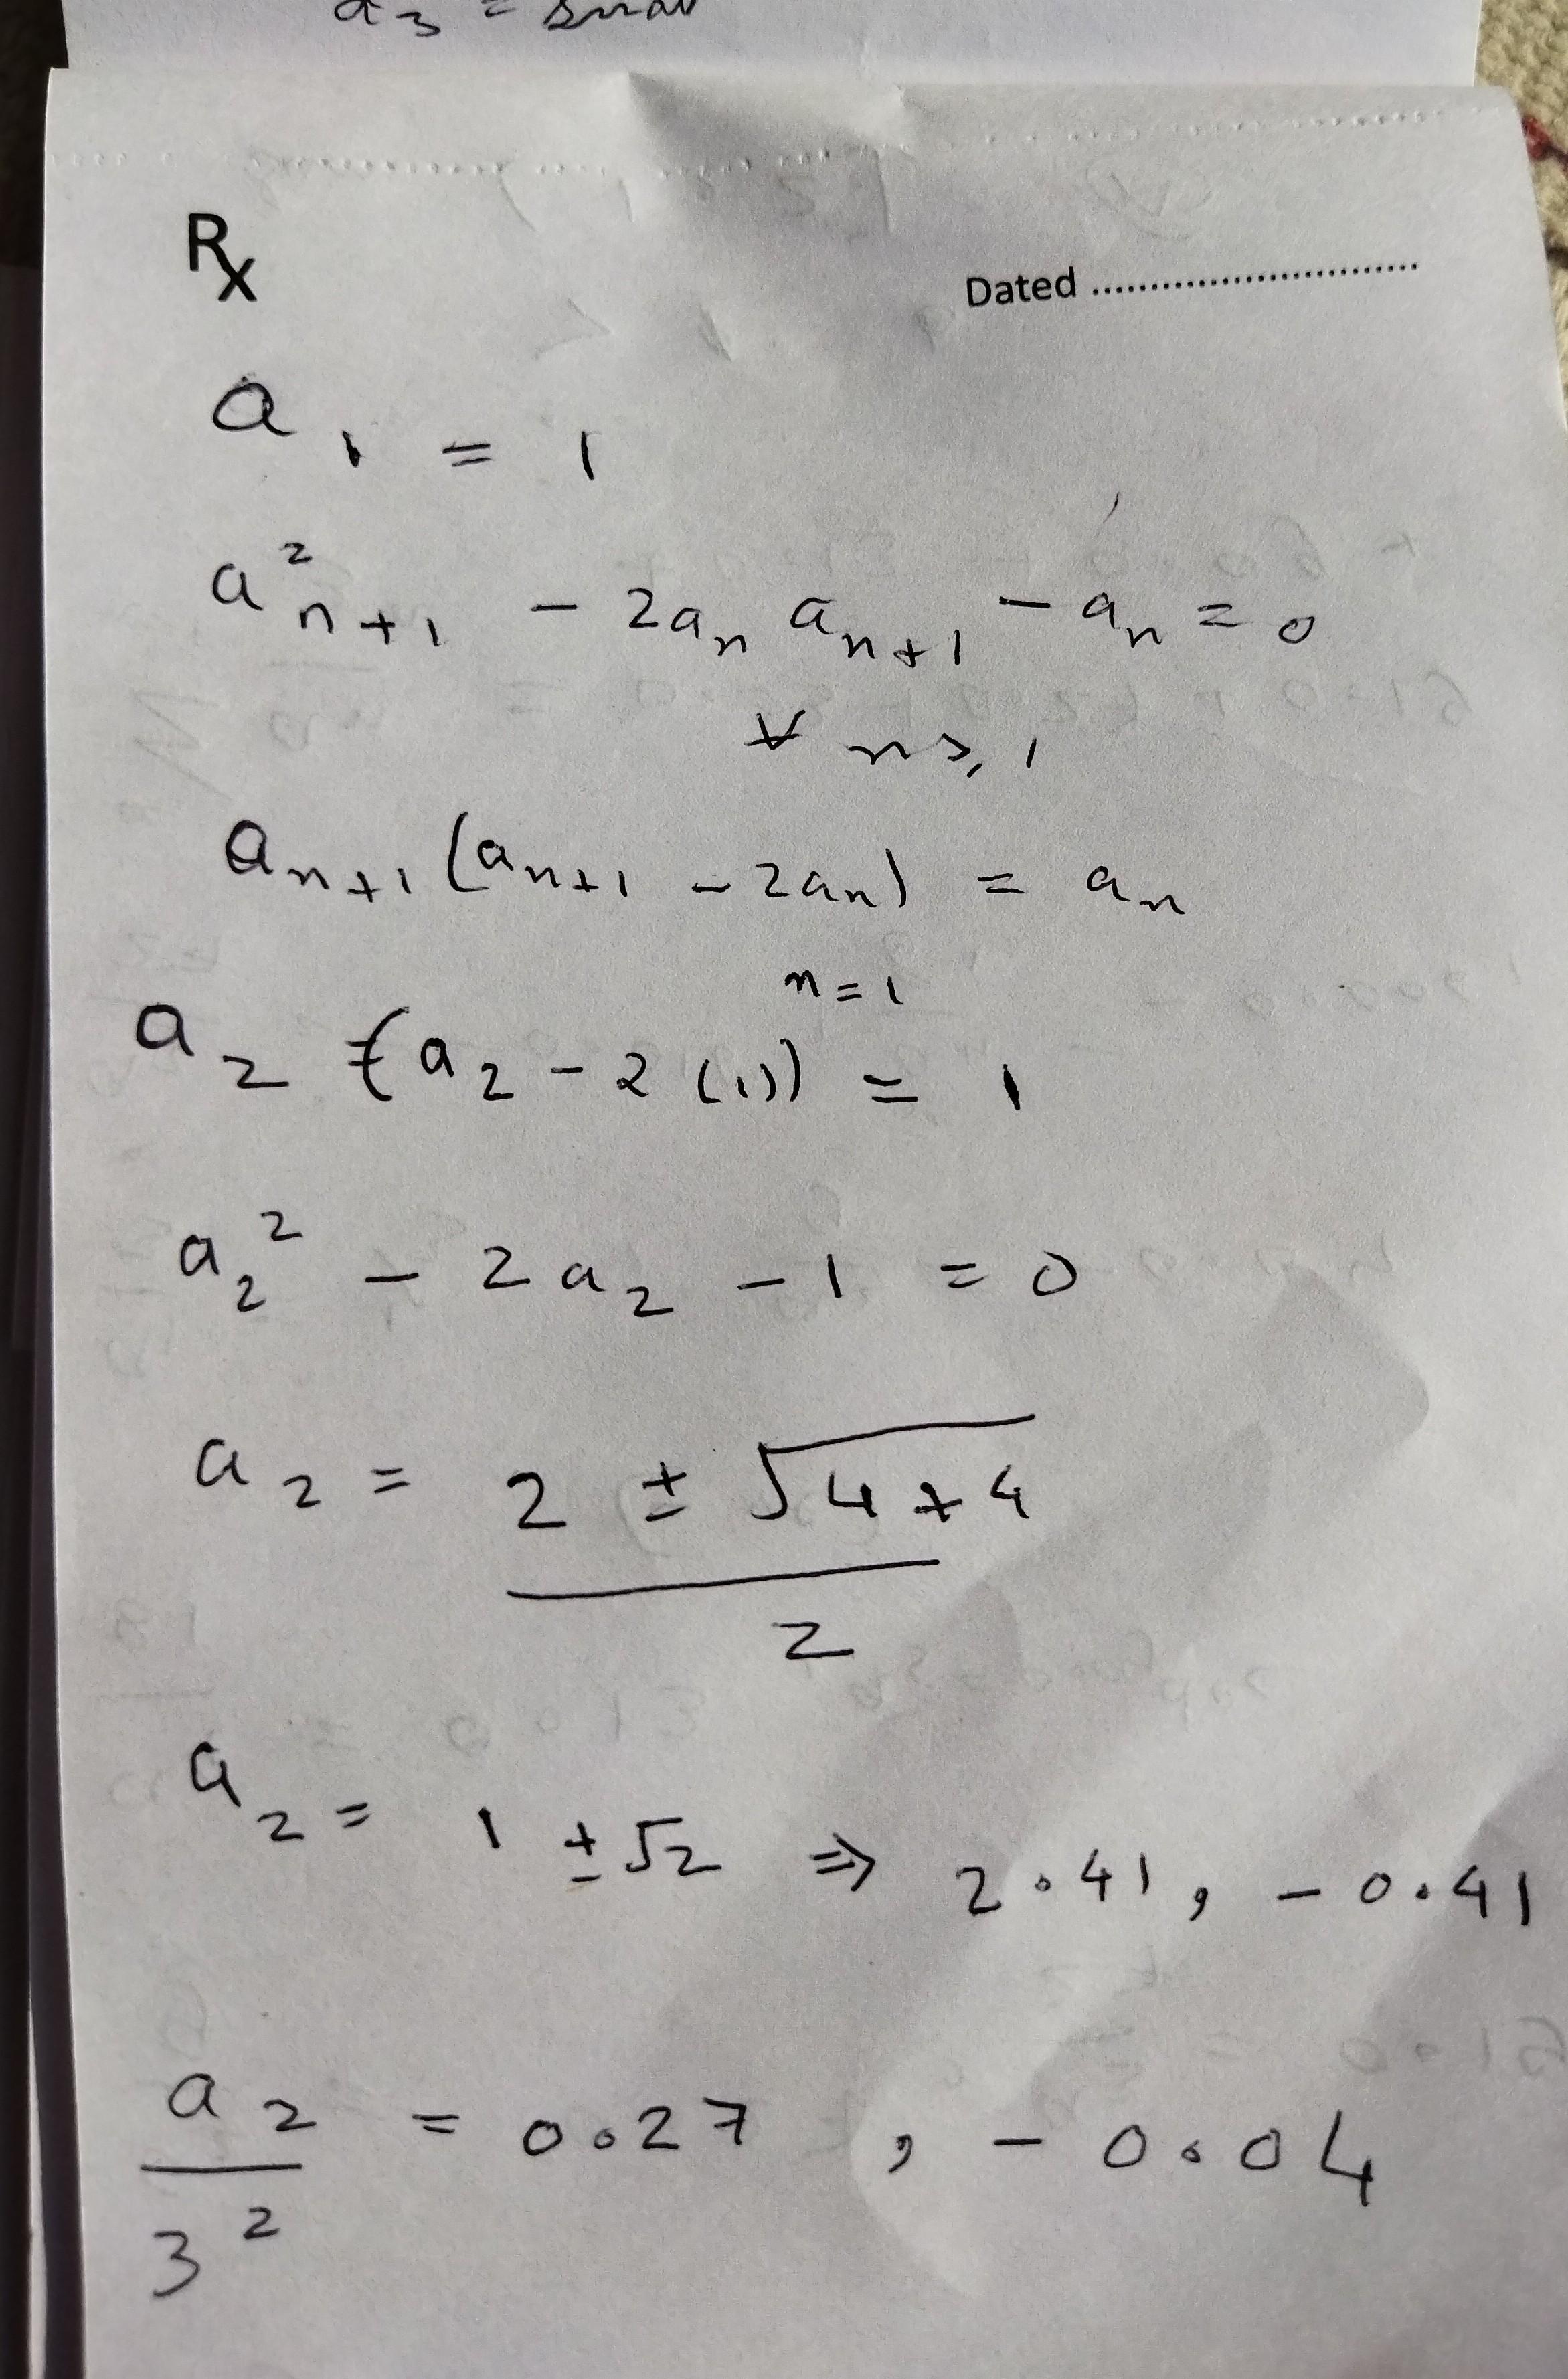 a₃ =
Rx
Dated ..............................
a₁ = 1
a²ₙ₊₁ - 2aₙ aₙ₊₁ - aₙ = 0
∀ n ≥ 1
aₙ₊₁ (aₙ₊₁ - 2aₙ) = aₙ
n = 1
a₂ (a₂ - 2(1)) = 1
a₂² - 2a₂ - 1 = 0
a₂ = 2 ± √4+4
2
a₂ = 1 ± √2 ⇒ 2.41, -0.41
a₂ = 0.27 , -0.04
3²